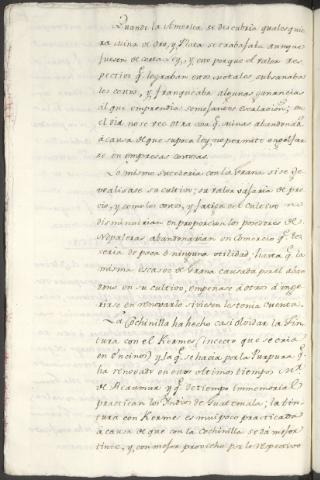 Quando la America se descubria qualesquie
ra Mina de Oro, y Plata se trabajaba aunque
fuesen de corta Ley, y esto porque el valor res-
pectivo qe. lograban estos Metales subsanaba
los costos, y franqueaba algunas ganancias
al que emprendia semejantes
el dia no se ve otra cosa qe. Minas abandonadas
à causa de que su poca ley no permite engolfar
se en empresas costosas.
Lo mismo sucederia con la Grana si se ge-
neralisase su cultivo; su valor vajaria de pre-
cio, y como los costos, y fatigas del Cultivo no
disminuirian en proporcion los poseedores de
Nopaleras abandonarian un Comercio qe. les
seria de poca ò ninguna utilidad, hasta qe. la
misma escases de Grana causada por el aban
dono en su cultivo, empeñase à otros à dirigir
se en renovarlo si viesen les tenia cuenta.
La Cochinilla ha hecho casi olvidar la Tin
tura con el Kermes (insecto que se cria
en Encinos) y la qe. se hacia por la Purpura qe.
ha renovado en estos ultimos tiempos Mr.
de Reaumur y qe. de tiempo inmemorial
practican los Indios de Guatemala; la tin
tura con Kermes es mui poco practicada
à causa de que con la Cochinilla se dà mejor
tinte, y con mejor provecho por lo respectivo